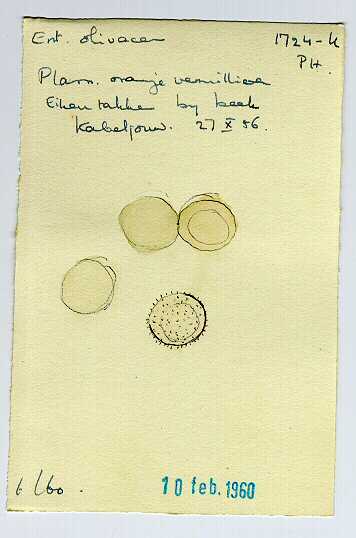 Ent. olivacea
1724-K
PH.
Plasm. oranje vermillioen
Eikentakken by beek
Kabeljouw. 27 X 56.
t /60.
10 feb. 1960